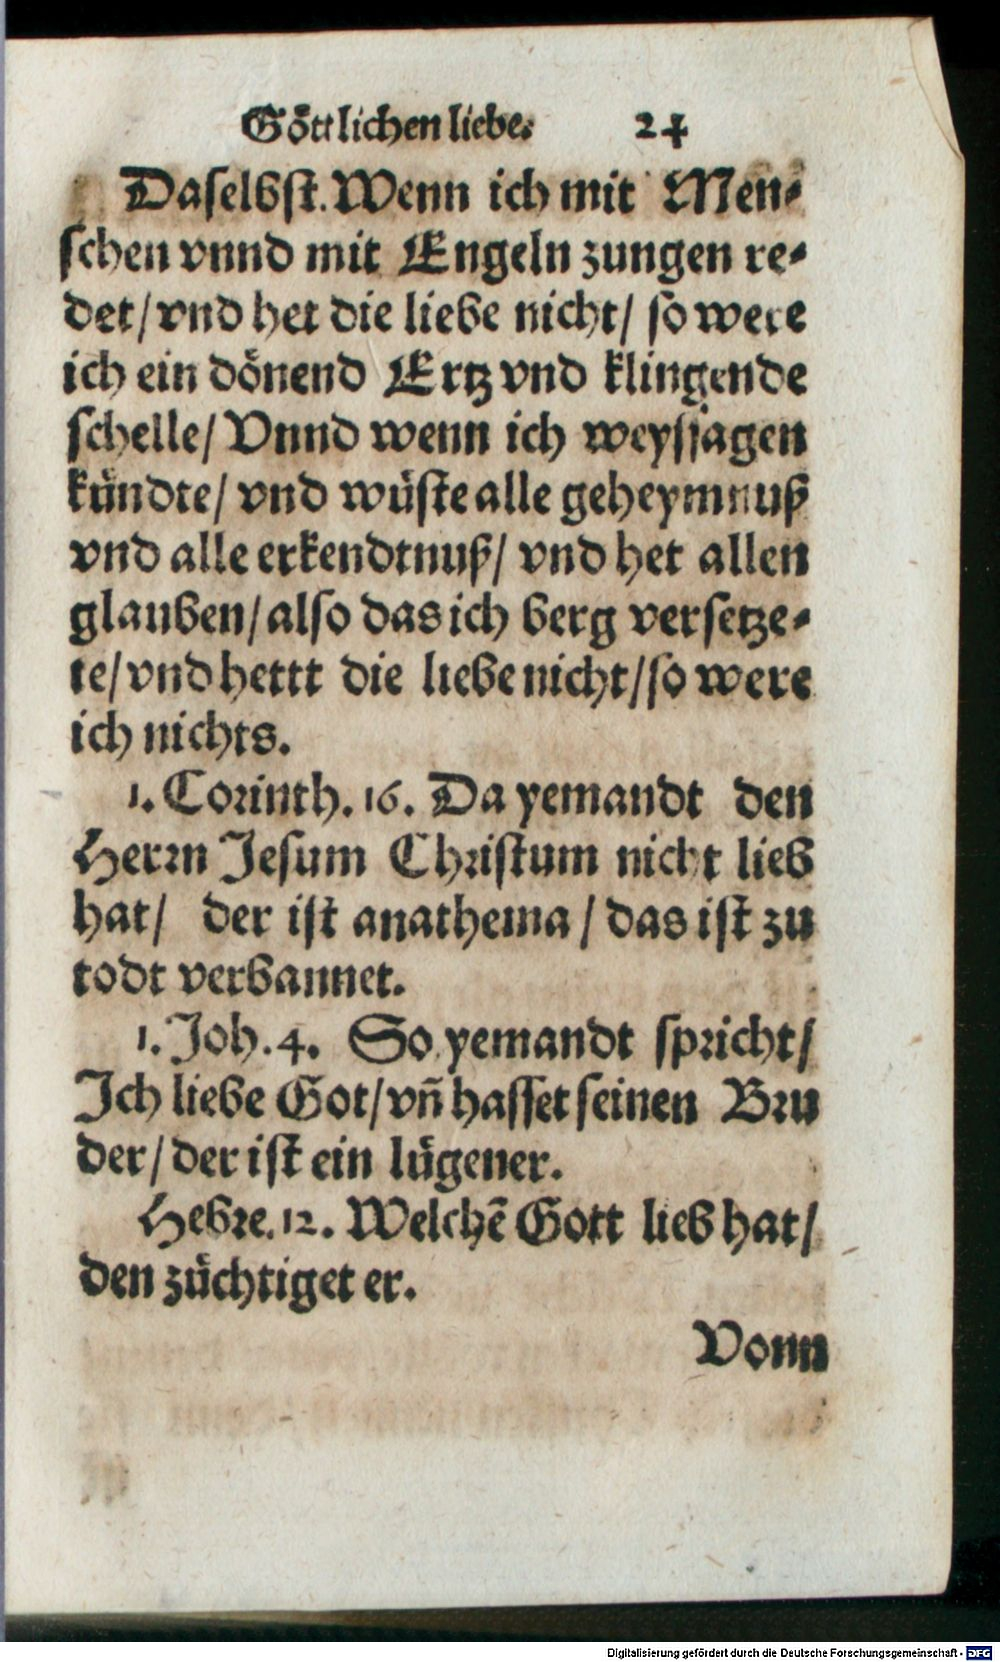 Göttlichen liebe. 24
Daselbst. Wenn ich mit Men-
schen vnnd mit Engeln zungen re-
det/ vnd het die liebe nicht/ so were
ich ein dönend Ertz vnd klingende
schelle/ Vnnd wenn ich weyssagen
kündte/ vnd wüste alle geheymnuß
vnd alle erkendtnuß/ vnd het allen
glauben/ also das ich berg versetze-
te/ vnd hettt die liebe nicht/ so were
ich nichts.
1. Corinth. 16. Da yemandt den
Herrn Jesum Christum nicht lieb
hat/ der ist anathema/ das ist zu
todt verbannet.
1. Joh. 4. So yemandt spricht/
Ich liebe Got/ vñ hasset seinen Bru
der/ der ist ein lügener.
Hebre. 12. Welchē Gott lieb hat/
den züchtiget er.
Vonn
Digitalisierung gefördert durch die Deutsche Forschungsgemeinschaft - DFG